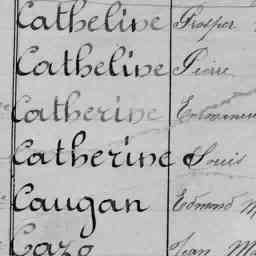 Catheline Prosper
Catheline Pierre
Catherine
Catherine Louis
Caugan Edmond M
Cazo Jean Ma